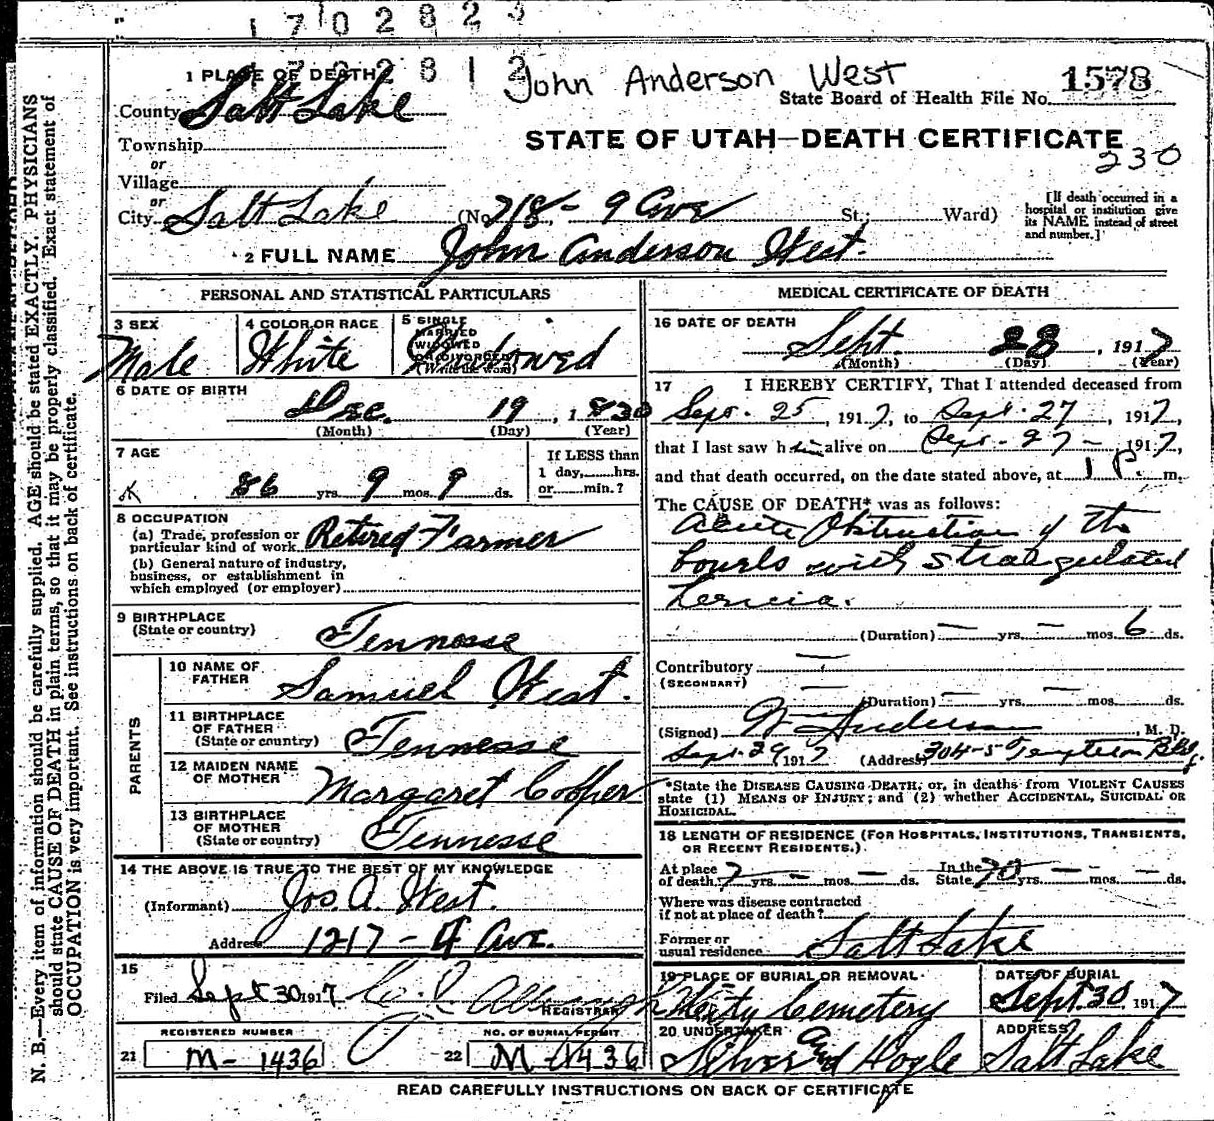 1702823
1702812
John Anderson West
1 PLACE OF DEATH
State Board of Health File No. 1578
County Salt Lake
STATE OF UTAH—DEATH CERTIFICATE
230
Township
or
Village
or
City Salt Lake (No. 718 - 9 Ave St.; Ward)
[If death occurred in a
hospital or institution give
its NAME instead of street
and number.]
2 FULL NAME John Anderson West.
PERSONAL AND STATISTICAL PARTICULARS
3 SEX Male
4 COLOR OR RACE White
5 SINGLE
MARRIED
WIDOWED
OR DIVORCED
(Write the word)
Widowed
6 DATE OF BIRTH
Dec. 19, 1830
(Month) (Day) (Year)
7 AGE
86 yrs. 9 mos. 9 ds.
If LESS than
1 day, hrs.
or min.?
8 OCCUPATION
(a) Trade, profession or
particular kind of work Retired Farmer
(b) General nature of industry,
business, or establishment in
which employed (or employer)
9 BIRTHPLACE
(State or country) Tennesse
PARENTS
10 NAME OF
FATHER Samuel West.
11 BIRTHPLACE
OF FATHER
(State or country) Tennesse
12 MAIDEN NAME
OF MOTHER Margaret Cooper
13 BIRTHPLACE
OF MOTHER
(State or country) Tennesse
14 THE ABOVE IS TRUE TO THE BEST OF MY KNOWLEDGE
(Informant) Jos. A. West.
Address 1217 - 4 Ave.
15
Filed Sept 30 1917
REGISTRAR
REGISTERED NUMBER
21 M- 1436
NO. OF BURIAL PERMIT
22 M- 1436
MEDICAL CERTIFICATE OF DEATH
16 DATE OF DEATH
Sept. 28, 1917
(Month) (Day) (Year)
17 I HEREBY CERTIFY, That I attended deceased from
Sept. 25, 1917, to Sept. 27, 1917,
that I last saw him alive on Sept. 27 - 1917,
and that death occurred, on the date stated above, at 1 P. m.
The CAUSE OF DEATH* was as follows:
Acute Obstruction of the
bowels with strangulated
hernia.
(Duration) — yrs. — mos. 6 ds.
Contributory —
(SECONDARY)
— (Duration) — yrs. — mos. ds.
(Signed) W Anderson M. D.
Sept. 29, 1917 (Address) 304-5 Templeton Bldg.
*State the DISEASE CAUSING DEATH, or, in deaths from VIOLENT CAUSES
state (1) MEANS OF INJURY; and (2) whether ACCIDENTAL, SUICIDAL OR
HOMICIDAL.
18 LENGTH OF RESIDENCE (FOR HOSPITALS, INSTITUTIONS, TRANSIENTS,
OR RECENT RESIDENTS.)
At place
of death. 7 yrs. — mos. — ds. In the
State 70 yrs. — mos. — ds.
Where was disease contracted
if not at place of death?
Former or
usual residence Salt Lake
19 PLACE OF BURIAL OR REMOVAL
City Cemetery
DATE OF BURIAL
Sept. 30, 1917
20 UNDERTAKER
Silver and Hogle
ADDRESS
Salt Lake
READ CAREFULLY INSTRUCTIONS ON BACK OF CERTIFICATE
N. B.—Every item of information should be carefully supplied. AGE should be stated EXACTLY. PHYSICIANS
should state CAUSE OF DEATH in plain terms, so that it may be properly classified. Exact statement of
OCCUPATION is very important. See instructions on back of certificate.